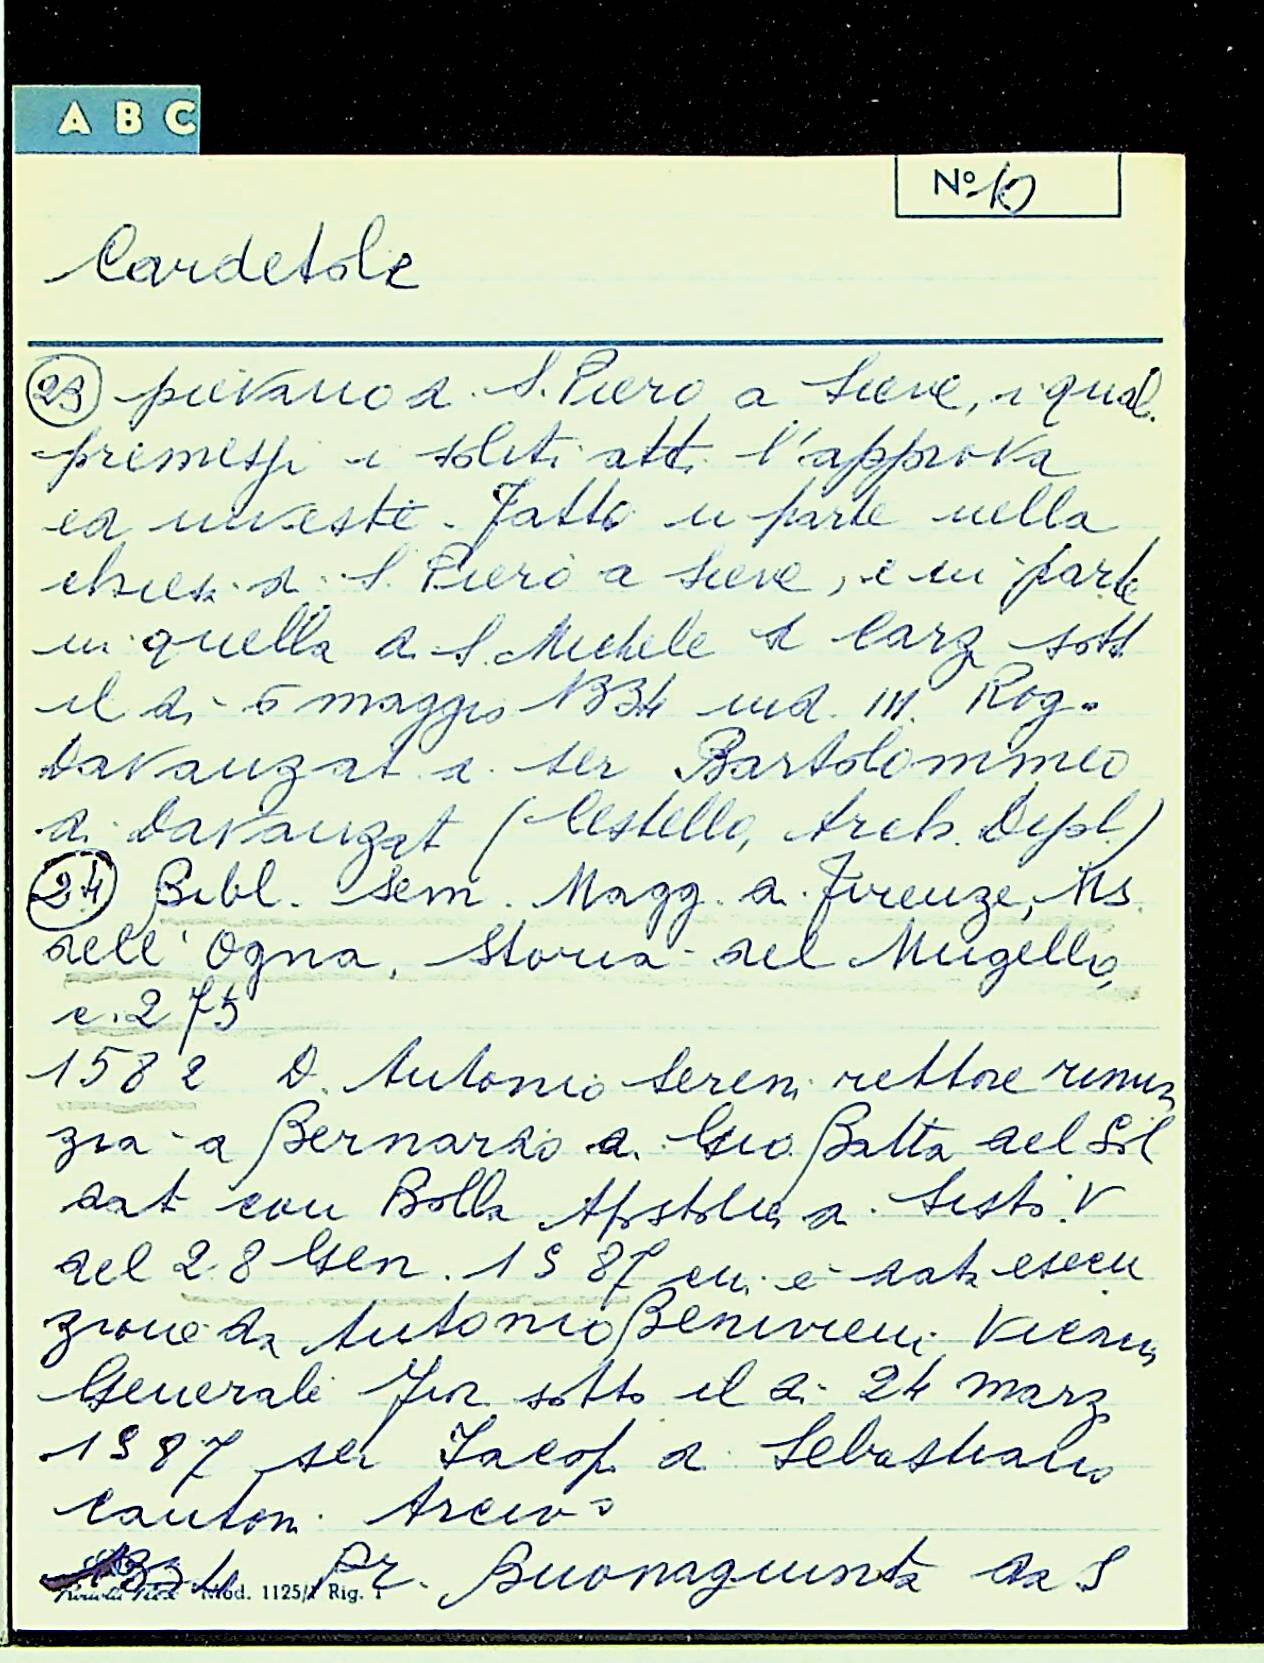 A B C
Nº 10
Cardetole
23 pievano di S. Piero a Sieve, i quali
premessi i soliti atti l'approva
ed investe. Fatto in parte nella
chiesa di S. Piero a Sieve, e in parte
in quella di S. Michele di Carza sotto
il di 6 maggio 1334 ind. III. Rog.
Davanzat di ser Bartolommeo
di Davanzat (Cestello, Arch. Dipl.)
24 Bibl. Sem. Magg. di Firenze, Ms.
dell'Ogna, Storia del Mugello,
c. 275
1582 D. Antonio Sereni rettore renun
zia a Bernardo di Gio Batta del Sol
dat con Bolla Apostolica di Sisto V
del 28 Gen. 1587 cui è data esecu
zione da Antonio Benivieni Vicario
Generale Fior. sotto il di 24 marz
1587 ser Jacop di Sebastiano
Arciv
1334 Pr. Buonagiunta da S
Mod. 1125/1 Rig. 1